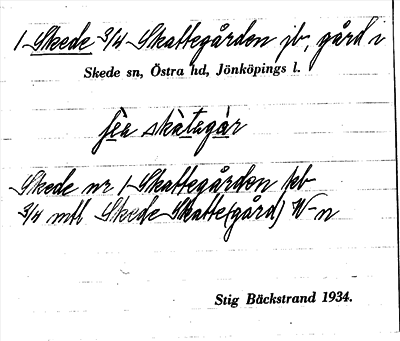 1 Skede 3/4 Skattegården jb, gård i
Skede sn, Östra hd, Jönköpings l.
skàtegàr
Skede nr 1 Skattegården jeb
3/4 mtl Skede Skatte(gård) W-n
Stig Bäckstrand 1934.